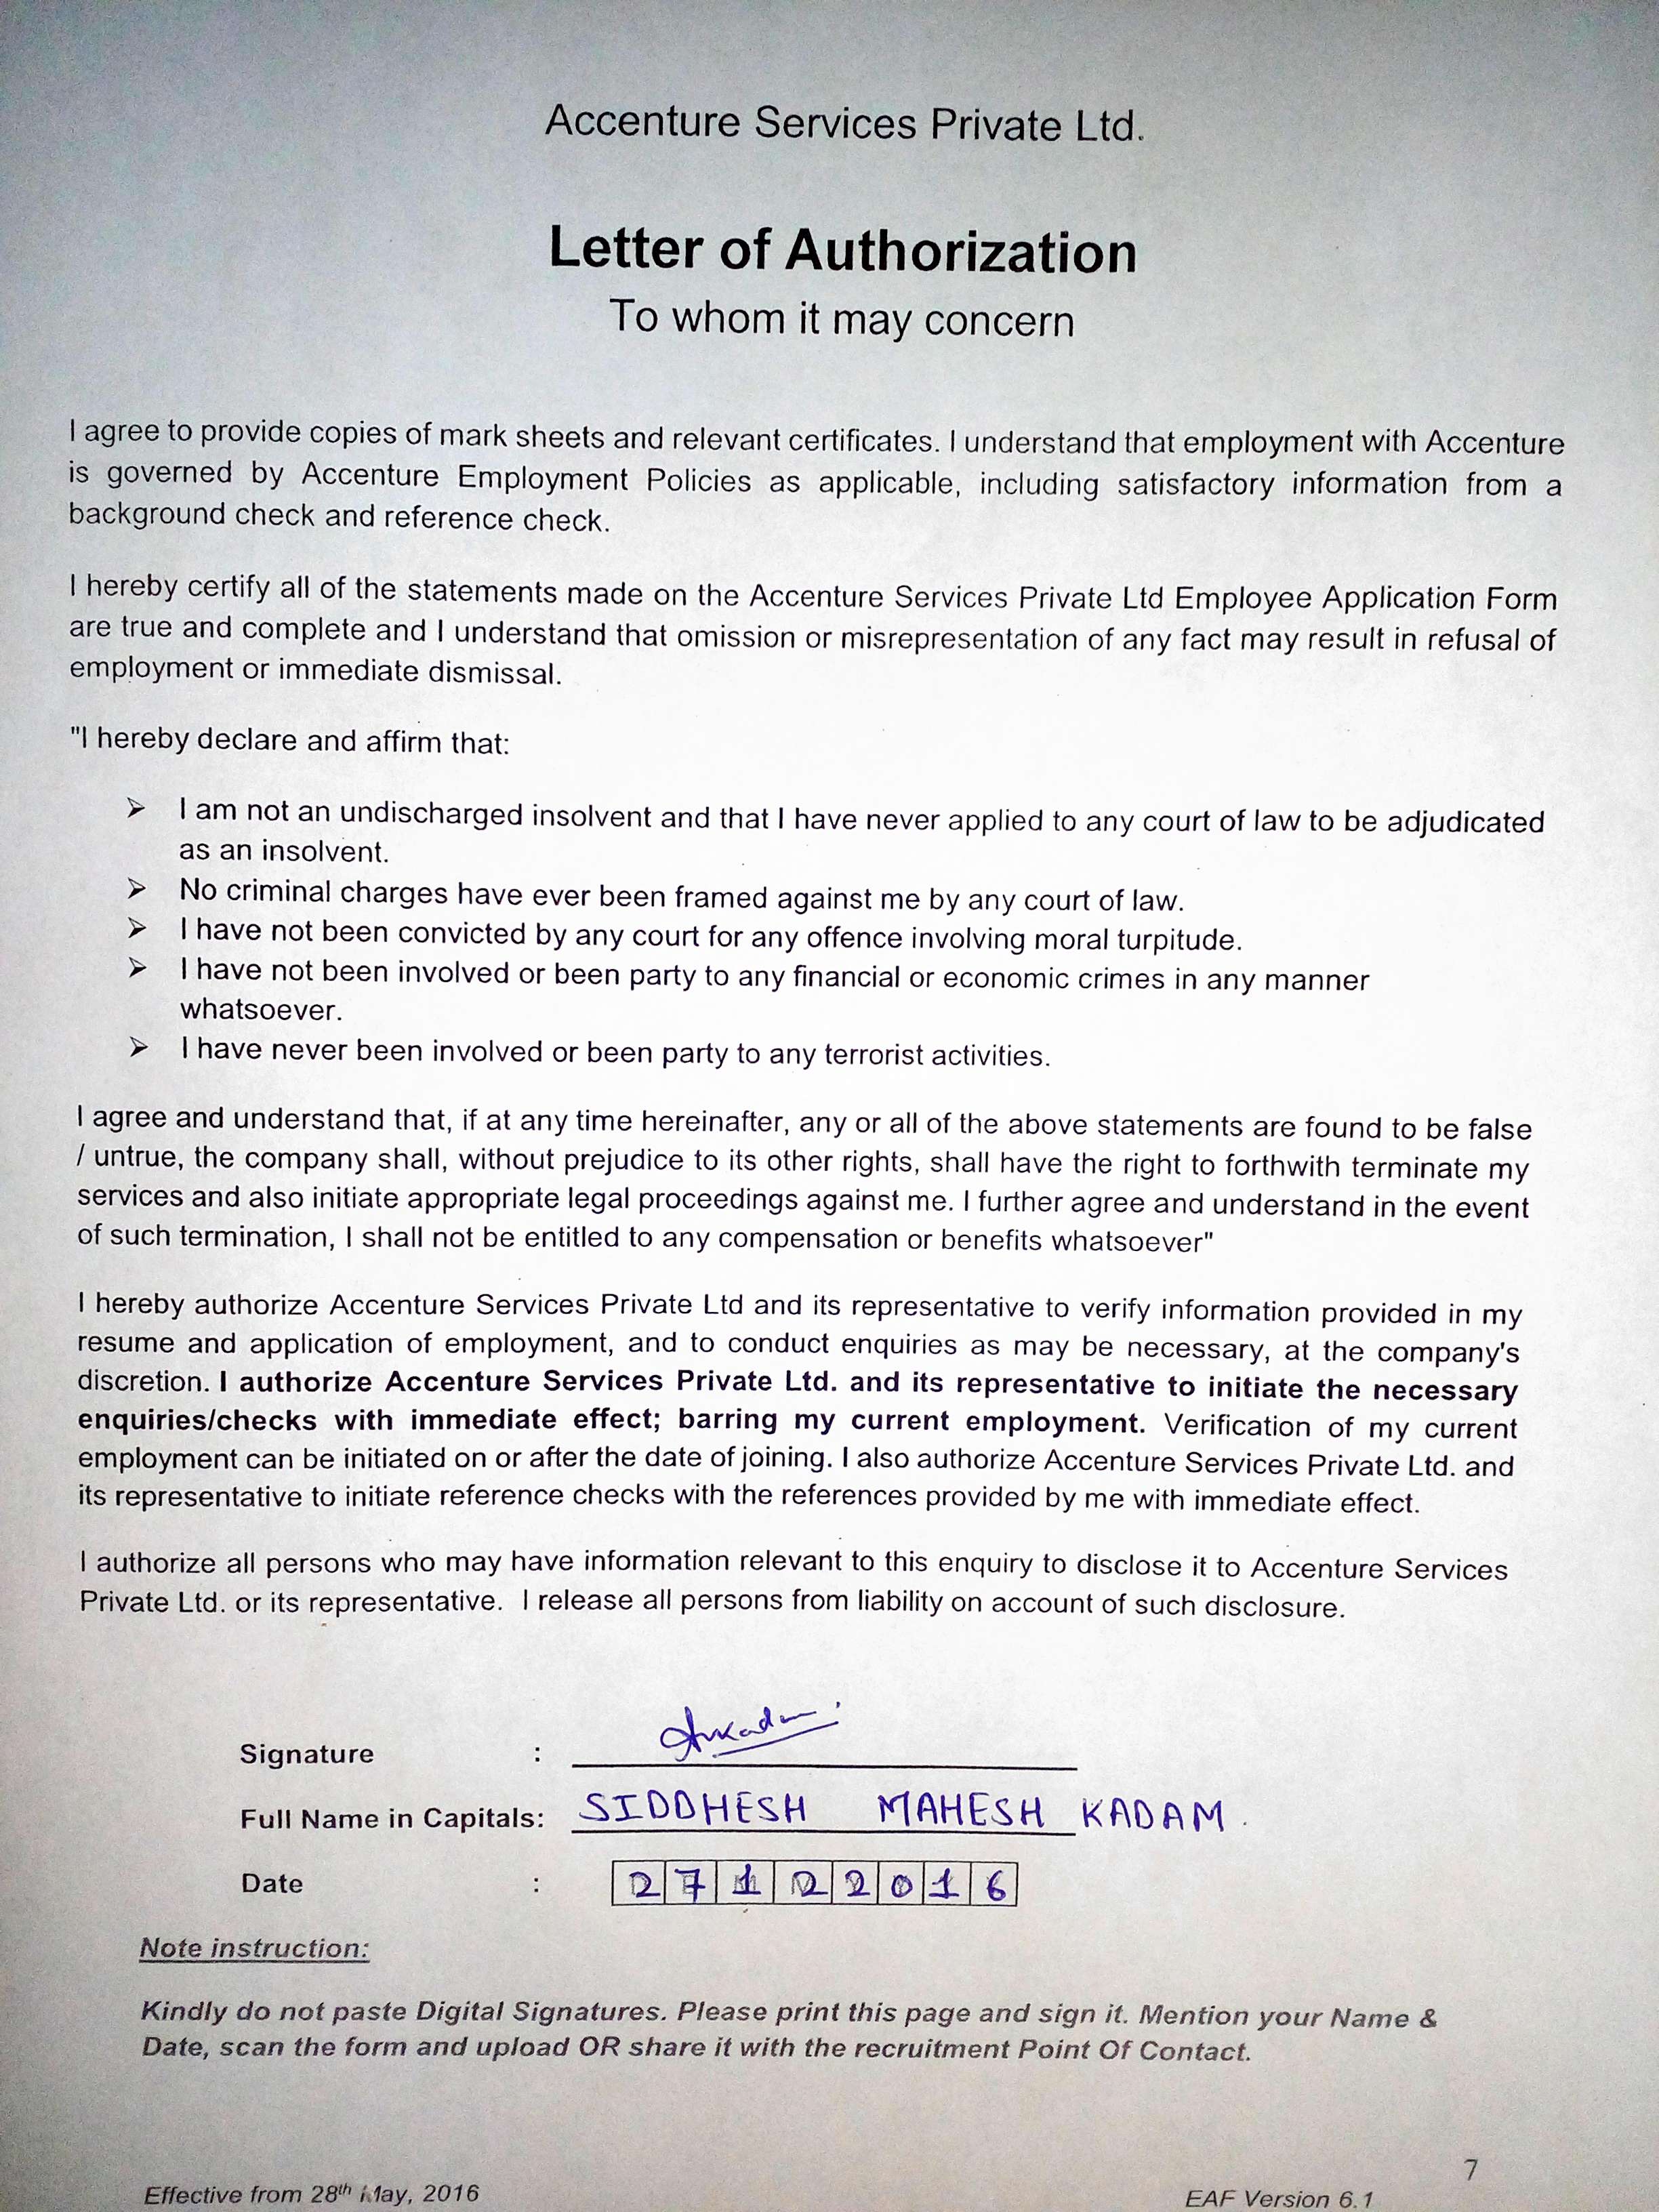 Accenture Services Private Ltd.
Letter of Authorization
To whom it may concern
I agree to provide copies of mark sheets and relevant certificates. I understand that employment with Accenture
is governed by Accenture Employment Policies as applicable, including satisfactory information from a
background check and reference check.
I hereby certify all of the statements made on the Accenture Services Private Ltd Employee Application Form
are true and complete and I understand that omission or misrepresentation of any fact may result in refusal of
employment or immediate dismissal.
"I hereby declare and affirm that:
➢ I am not an undischarged insolvent and that I have never applied to any court of law to be adjudicated
as an insolvent.
➢ No criminal charges have ever been framed against me by any court of law.
➢ I have not been convicted by any court for any offence involving moral turpitude.
➢ I have not been involved or been party to any financial or economic crimes in any manner
whatsoever.
➢ I have never been involved or been party to any terrorist activities.
I agree and understand that, if at any time hereinafter, any or all of the above statements are found to be false
/ untrue, the company shall, without prejudice to its other rights, shall have the right to forthwith terminate my
services and also initiate appropriate legal proceedings against me. I further agree and understand in the event
of such termination, I shall not be entitled to any compensation or benefits whatsoever"
I hereby authorize Accenture Services Private Ltd and its representative to verify information provided in my
resume and application of employment, and to conduct enquiries as may be necessary, at the company's
discretion. I authorize Accenture Services Private Ltd. and its representative to initiate the necessary
enquiries/checks with immediate effect; barring my current employment. Verification of my current
employment can be initiated on or after the date of joining. I also authorize Accenture Services Private Ltd. and
its representative to initiate reference checks with the references provided by me with immediate effect.
I authorize all persons who may have information relevant to this enquiry to disclose it to Accenture Services
Private Ltd. or its representative. I release all persons from liability on account of such disclosure.
Signature :
Full Name in Capitals: SIDDHESH MAHESH KADAM.
Date : 27122016
Note instruction:
Kindly do not paste Digital Signatures. Please print this page and sign it. Mention your Name &
Date, scan the form and upload OR share it with the recruitment Point Of Contact.
7
Effective from 28th May, 2016 EAF Version 6.1